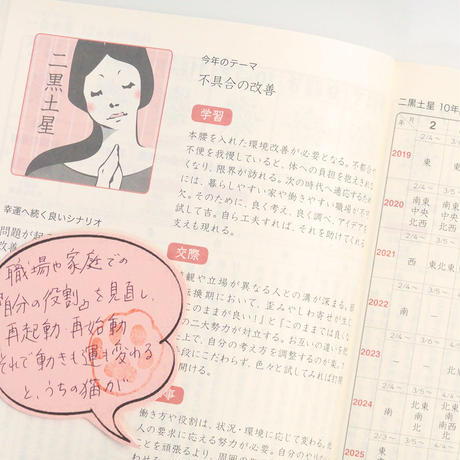 二黒土星
今年のテーマ
不具合の改善
学習
本腰を入れた環境改善が必要となる。不都合や
不便を我慢していると、体への負担を抱えきれな
くなり、限界が訪れる。次の時代へ適応するため
には、暮らしやすい家や働きやすい職場が不可
欠。そのために、良く考え、良く調べ、アイデアを
試して吉。自ら工夫すれば、それを助けてくれる
支えも現れる。
幸運へ続く良いシナリオ
問題が起こ
改善
職場や家庭での
「自分の役割」を見直し、
再起動・再始動
それで動きも運も変わる
と、うちの猫が
交際
観や立場が異なる人との溝が深まる。
転換期において、歪みやしわ寄せが生じ
このままが良い!」と「このままでは良く
の二大勢力が対立する。お互いの違いを
上で、自分の考え方を調整するのが楽。
段にこだわらず、色々と試してみれば打開
開ける。
事
働き方や役割は、状況・環境に応じて変わる。
人の要求に応える努力が必要。自分のやり
ことを頑張るより、周囲の
二黒土星 10年
年 月 2
2/4〜 3/
2019 東 東
2/4〜 3/5〜
2020 南東 中央 北西 南東 中央 北西
2/3〜 3/5〜
2021 西 東北 東北
2/4〜 3/5〜
2022 — 南
2/4〜 3/6〜
2023 北 —
2/4〜 3/5〜
2024 南 北東 南 北西
2/3〜 3/5
2025 東